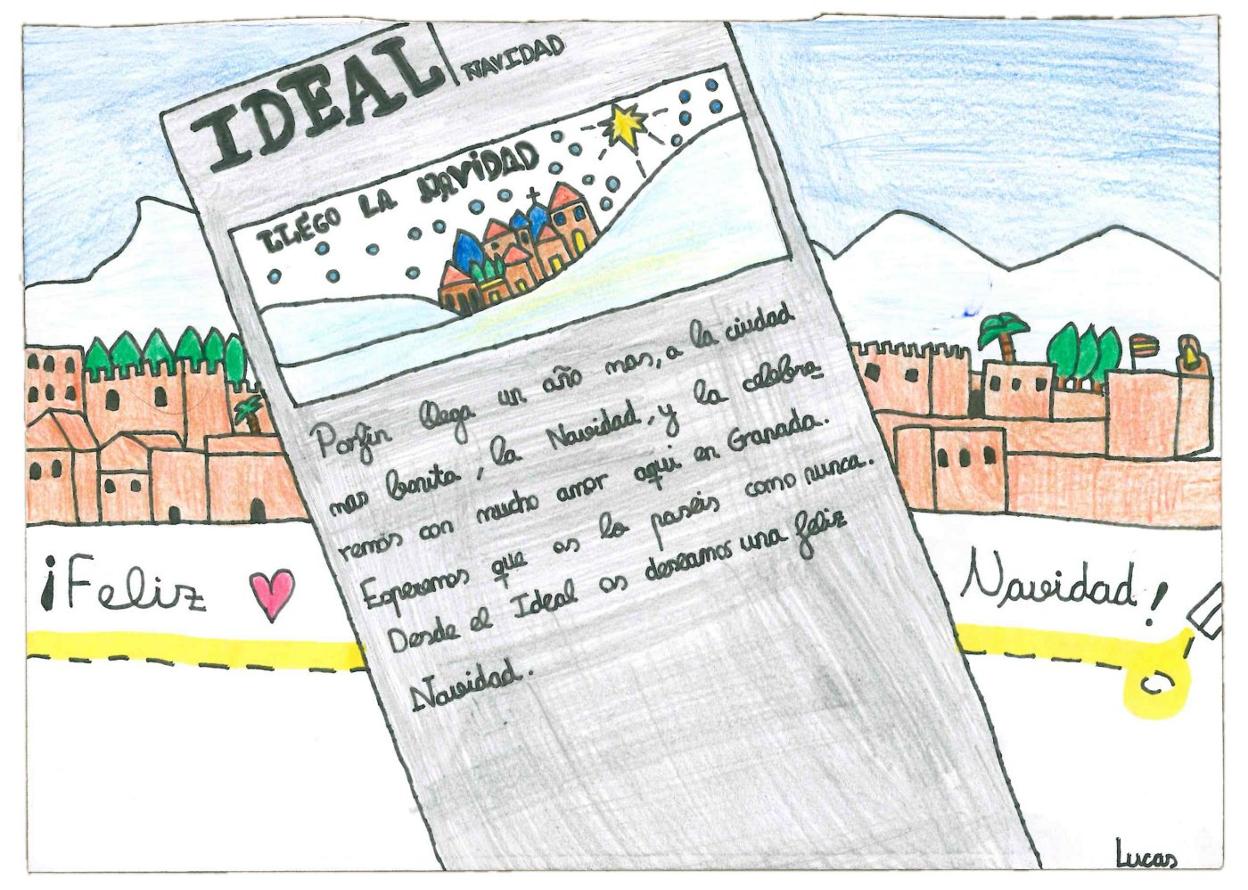 IDEAL
NAVIDAD
LLEGO LA NAVIDAD
Porfin llega un año mas, a la ciudad
mas bonita, la Navidad, y la celebra-
remos con mucho amor aqui en Granada.
Esperemos que os lo paséis como nunca.
Desde el Ideal os deseamos una feliz
Navidad.
¡Feliz Navidad!
Lucas